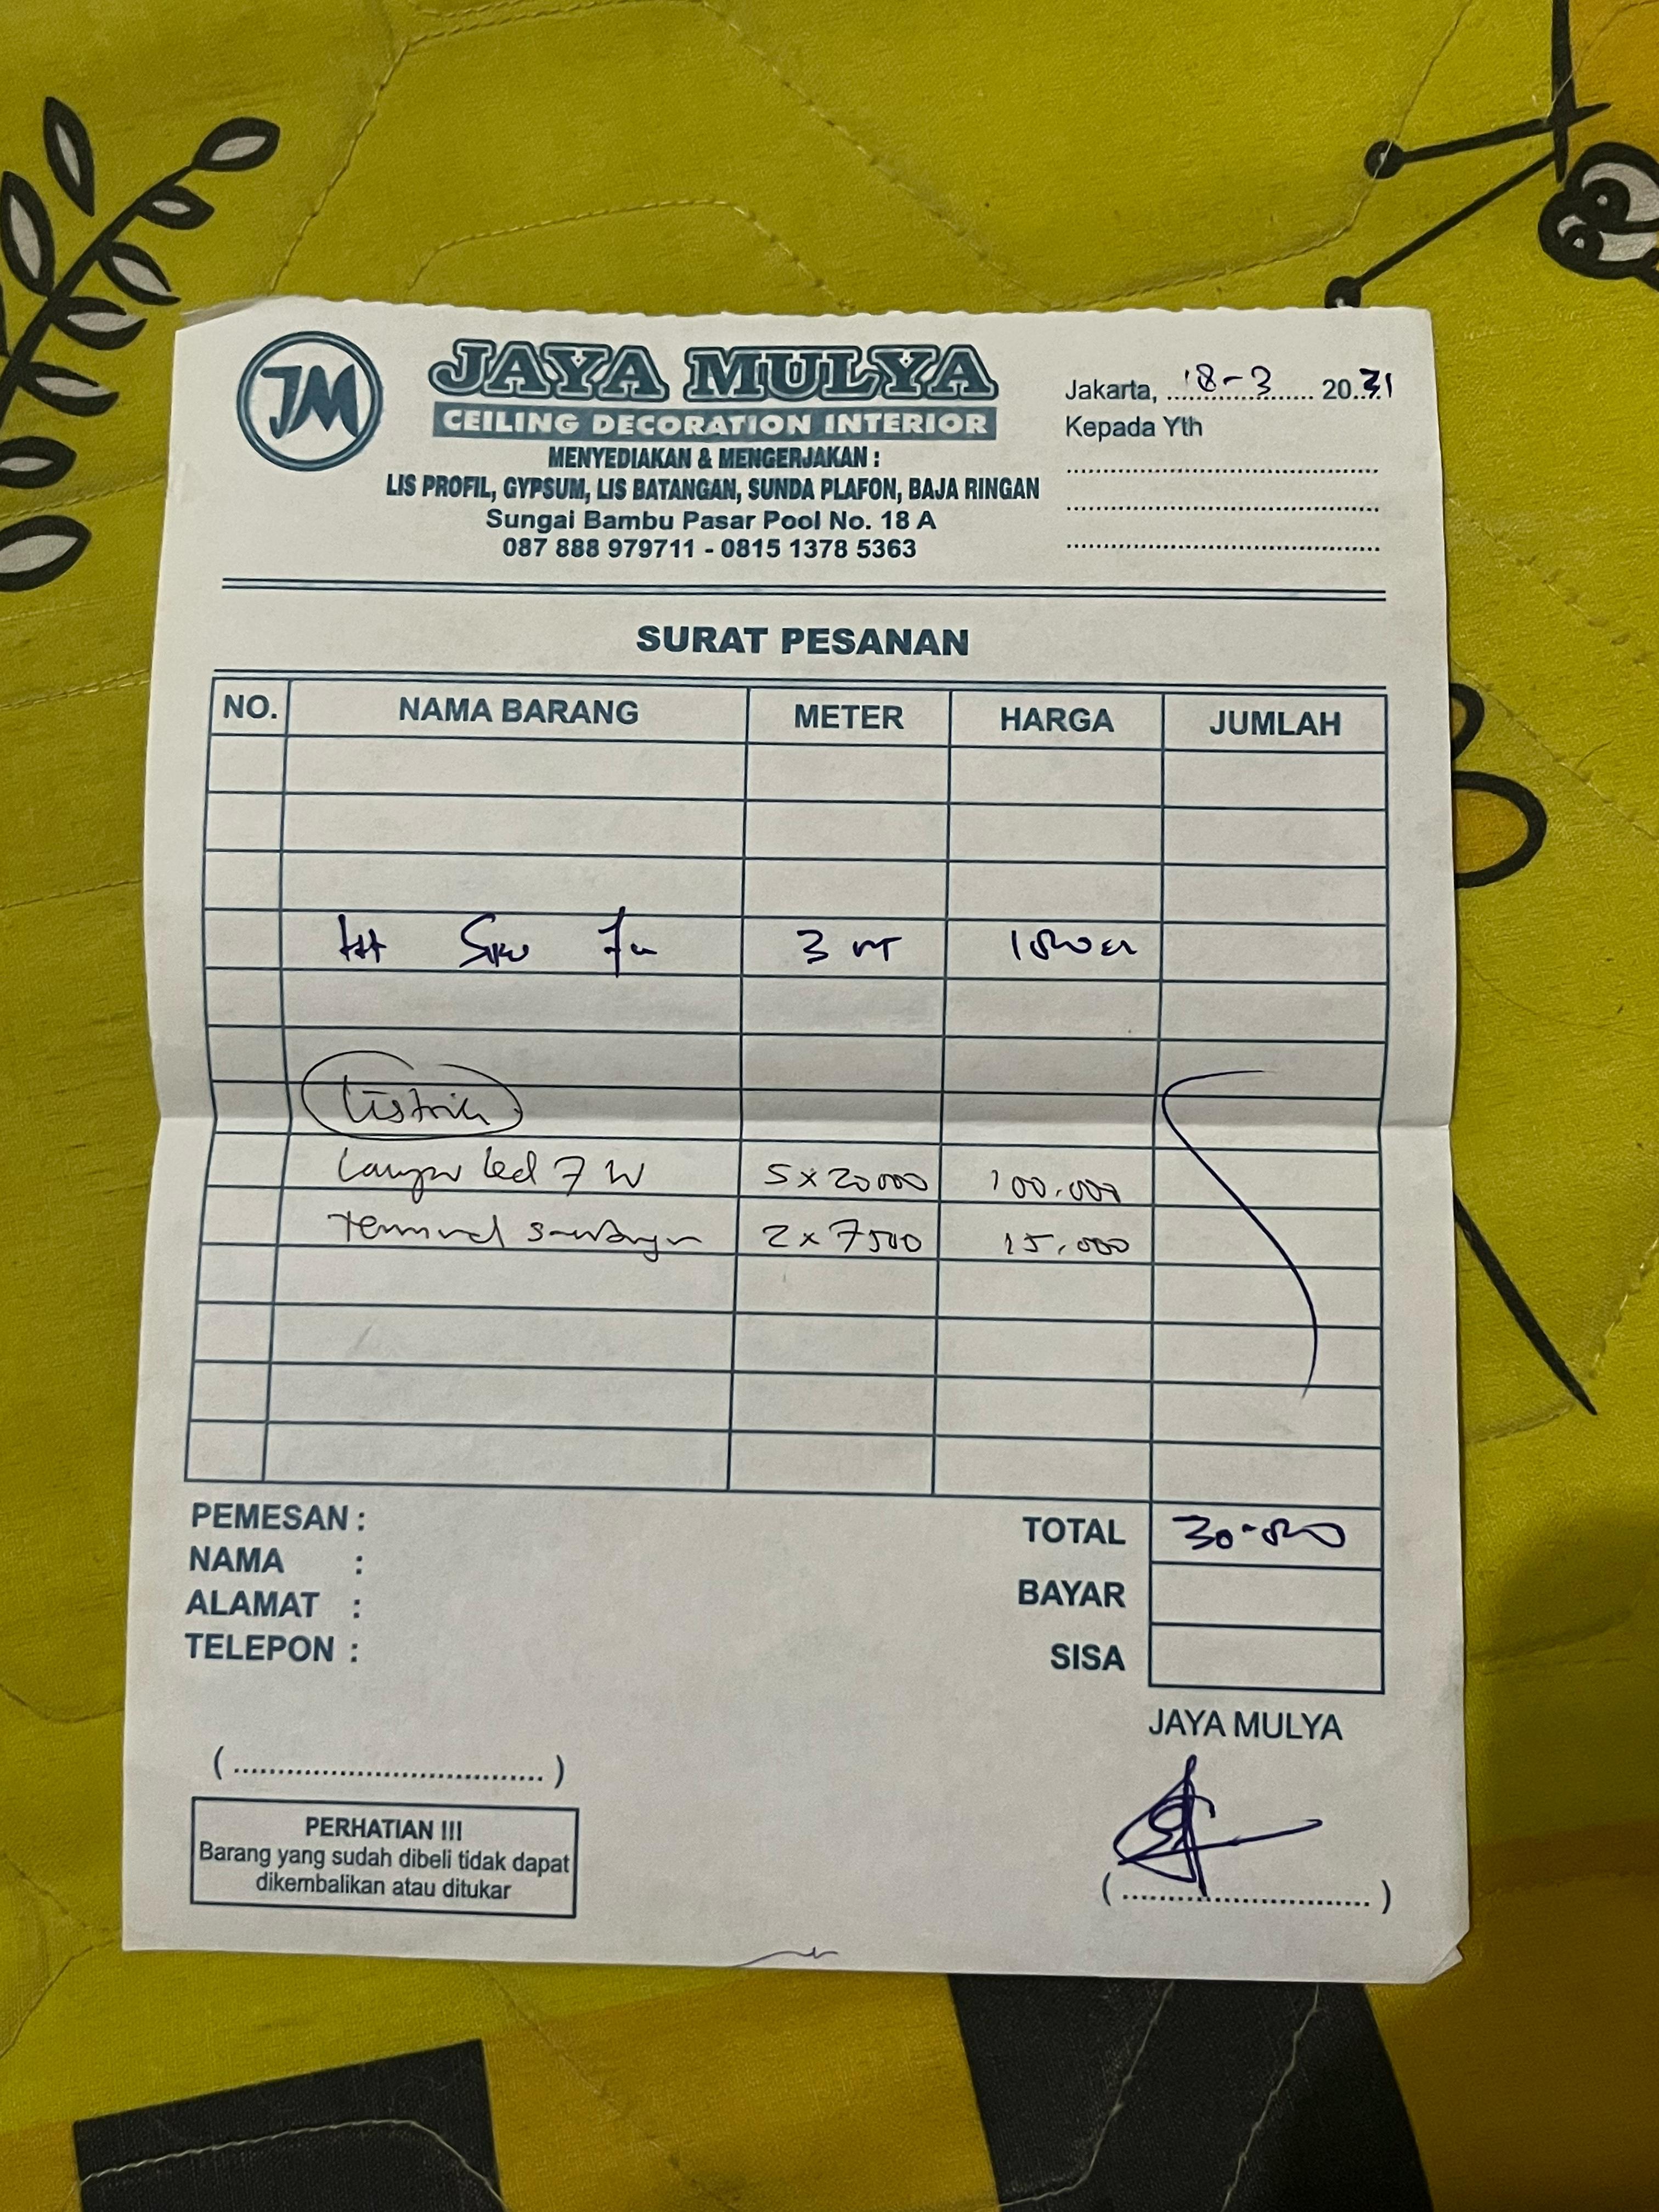 JM
JAYA MULYA
CEILING DECORATION INTERIOR
MENYEDIAKAN & MENGERJAKAN :
LIS PROFIL, GYPSUM, LIS BATANGAN, SUNDA PLAFON, BAJA RINGAN
Sungai Bambu Pasar Pool No. 18 A
087 888 979711 - 0815 1378 5363
Jakarta, 18-3 2031
Kepada Yth
SURAT PESANAN
NO. NAMA BARANG METER HARGA JUMLAH
3
Listrik
Lampu Led 7 W 5 x 20000 100.000
Terminal 2 x 7500 15.000
PEMESAN :
NAMA :
ALAMAT :
TELEPON :
TOTAL
BAYAR
SISA
JAYA MULYA
(.................................)
(.................................)
PERHATIAN III
Barang yang sudah dibeli tidak dapat
dikembalikan atau ditukar